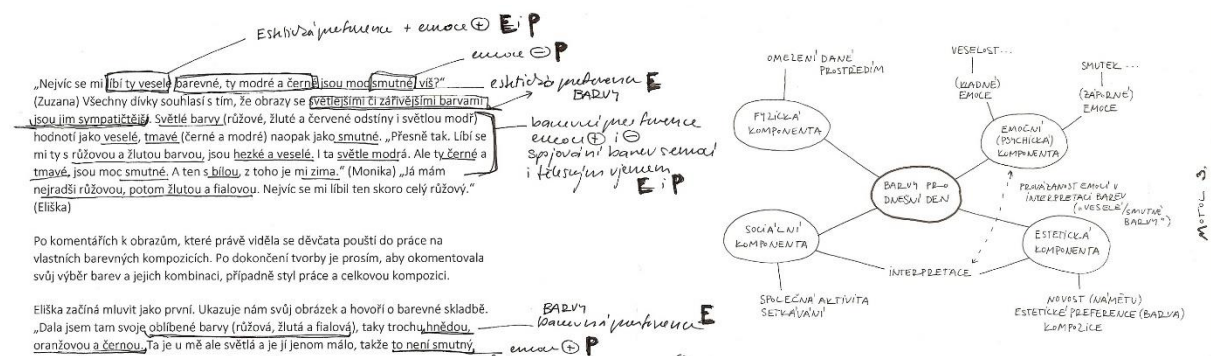 Estetická preference + emoce ⊕ E i P
emoce ⊖ P
„Nejvíc se mi líbí ty veselé barevné, ty modré a černé jsou moc smutné, víš?“
estetická preference E
BARVY
(Zuzana) Všechny dívky souhlasí s tím, že obrazy se světlejšími či zářivějšími barvami
jsou jim sympatičtější. Světlé barvy (růžové, žluté a červené odstíny i světlou modř)
hodnotí jako veselé, tmavé (černé a modré) naopak jako smutné. „Přesně tak. Líbí se
mi ty s růžovou a žlutou barvou, jsou hezké a veselé. I ta světle modrá. Ale ty černé a
tmavé, jsou moc smutné. A ten s bílou, z toho je mi zima.“ (Monika) „Já mám
nejradši růžovou, potom žlutou a fialovou. Nejvíc se mi líbil ten skoro celý růžový.“
(Eliška)
barevná preference
emoce ⊕ i ⊖
spojování barev s emocí
i tělesným vjemem
E i P
Po komentářích k obrazům, které právě viděla se děvčata pouští do práce na
vlastních barevných kompozicích. Po dokončení tvorby je prosím, aby okomentovala
svůj výběr barev a jejich kombinaci, případně styl práce a celkovou kompozici.
Eliška začíná mluvit jako první. Ukazuje nám svůj obrázek a hovoří o barevné skladbě.
„Dala jsem tam svoje oblíbené barvy (růžová, žlutá a fialová), taky trochu hnědou,
oranžovou a černou. Ta je u mě ale světlá a je jí jenom málo, takže to není smutný,
BARVY
barevná preference E
emoce ⊕ P
OMEZENÍ DANÉ
PROSTŘEDÍM
FYZICKÁ
KOMPONENTA
VESELOST...
(KLADNÉ)
EMOCE
SMUTEK...
(ZÁPORNÉ)
EMOCE
EMOČNÍ
(PSYCHICKÁ)
KOMPONENTA
BARVY PRO
DNEŠNÍ DEN
PROVÁZANOST EMOCÍ V
INTERPRETACI BAREV
(„VESELÉ/SMUTNÉ
BARVY“)
SOCIÁLNÍ
KOMPONENTA
ESTETICKÁ
KOMPONENTA
INTERPRETACE
SPOLEČNÁ AKTIVITA
SETKÁVÁNÍ
NOVOST (NÁMĚTU)
ESTETICKÉ PREFERENCE (BARVA)
KOMPOZICE
MOTOL 3.